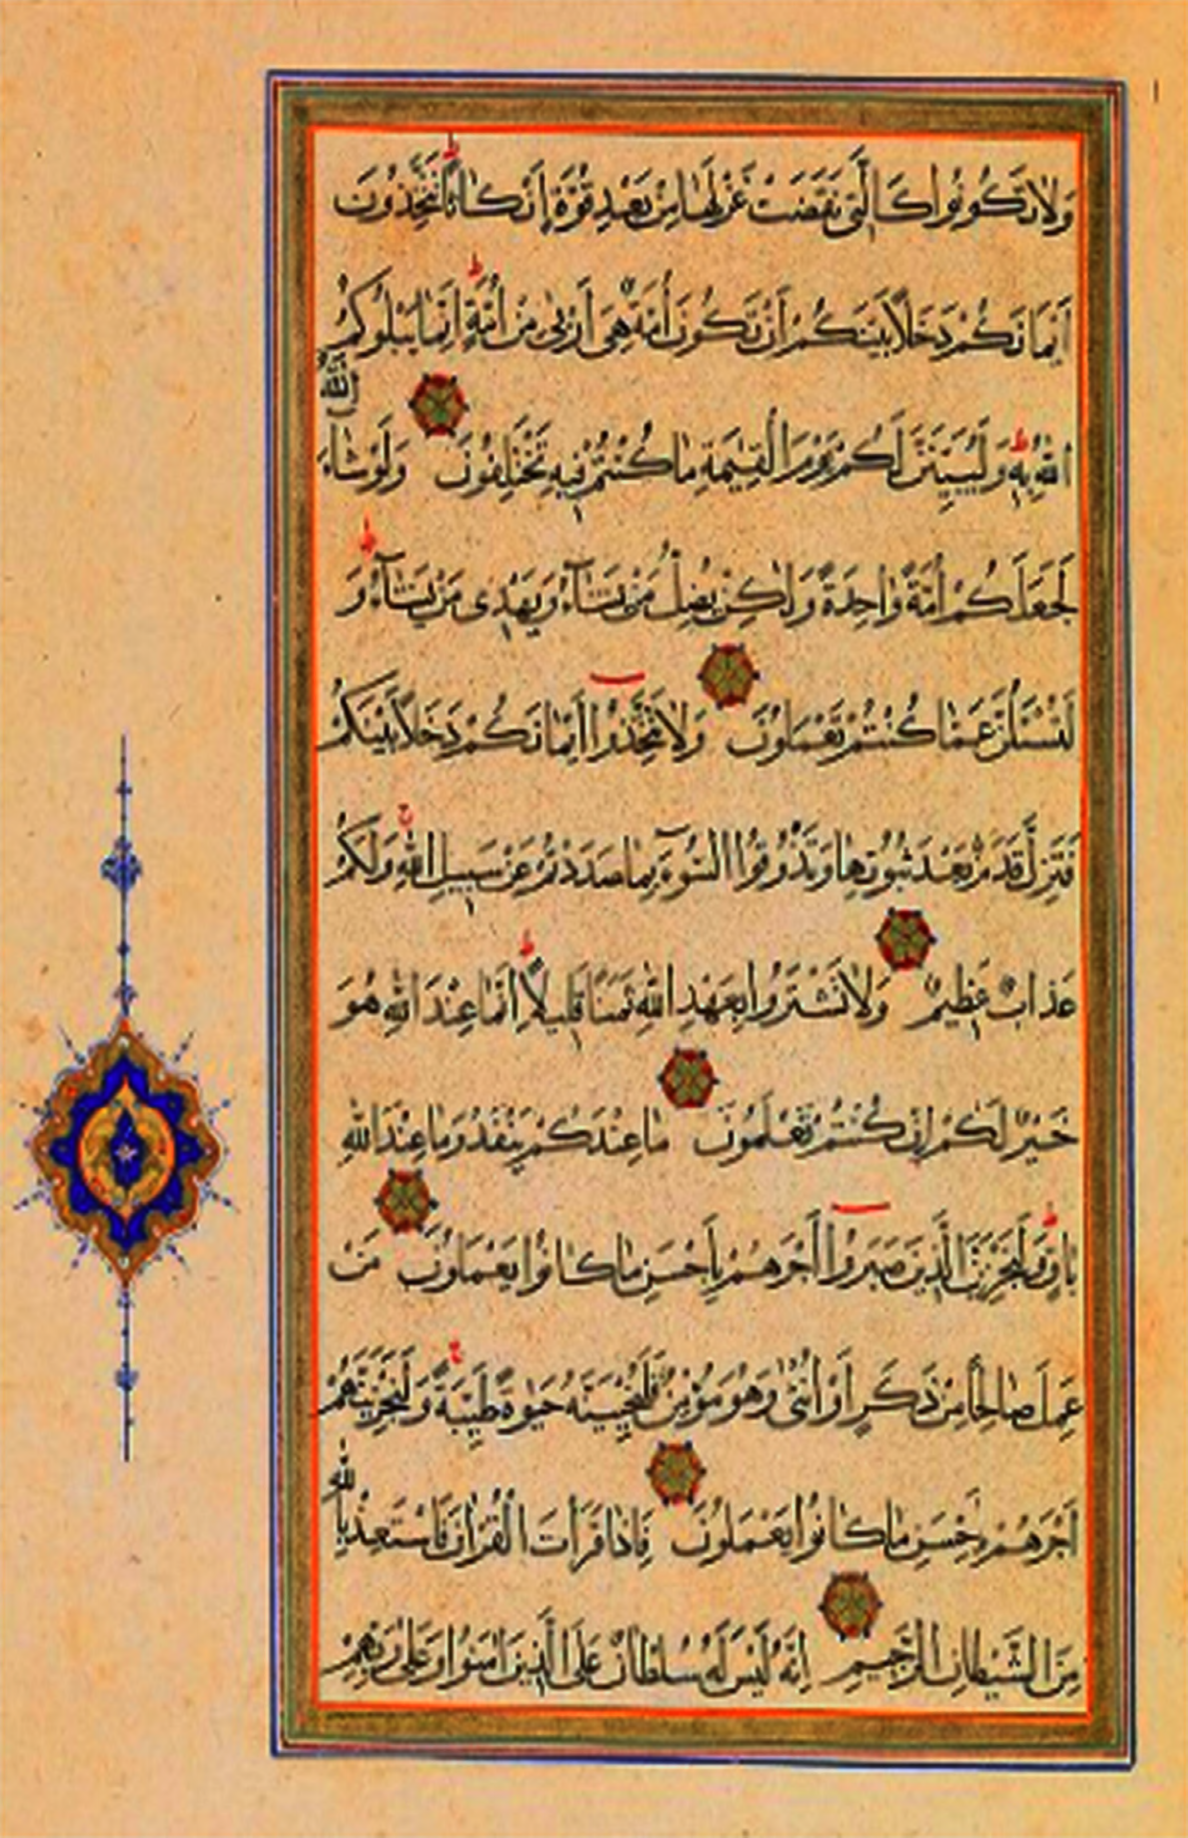 وَلَا تَكُونُوا كَالَّتِي نَقَضَتْ غَزْلَهَا مِنْ بَعْدِ قُوَّةٍ أَنْكَاثًا تَتَّخِذُونَ
أَيْمَانَكُمْ دَخَلًا بَيْنَكُمْ أَنْ تَكُونَ أُمَّةٌ هِيَ أَرْبَى مِنْ أُمَّةٍ إِنَّمَا يَبْلُوكُمُ
اللَّهُ بِهِ وَلَيُبَيِّنَنَّ لَكُمْ يَوْمَ الْقِيٰمَةِ مَا كُنْتُمْ فِيهِ تَخْتَلِفُونَ وَلَوْ شَاءَ اللَّهُ
لَجَعَلَكُمْ أُمَّةً وَاحِدَةً وَلَكِنْ يُضِلُّ مَنْ يَشَآءُ وَيَهْدِي مَنْ يَشَآءُ وَ
لَتُسْئَلُنَّ عَمَّا كُنْتُمْ تَعْمَلُونَ وَلَا تَتَّخِذُوا أَيْمَانَكُمْ دَخَلًا بَيْنَكُمْ
فَتَزِلَّ قَدَمٌ بَعْدَ ثُبُوتِهَا وَتَذُوقُوا السُّوٓءَ بِمَا صَدَدْتُمْ عَنْ سَبِيلِ اللَّهِ وَلَكُمْ
عَذَابٌ عَظِيمٌ وَلَا تَشْتَرُوا بِعَهْدِ اللَّهِ ثَمَنًا قَلِيلًا إِنَّمَا عِنْدَ اللَّهِ هُوَ
خَيْرٌ لَكُمْ إِنْ كُنْتُمْ تَعْلَمُونَ مَا عِنْدَكُمْ يَنْفَدُ وَمَا عِنْدَ اللَّهِ
بَاقٍ وَلَنَجْزِيَنَّ الَّذِينَ صَبَرُوا أَجْرَهُمْ بِأَحْسَنِ مَا كَانُوا يَعْمَلُونَ مَنْ
عَمِلَ صَالِحًا مِنْ ذَكَرٍ أَوْ أُنْثَى وَهُوَ مُؤْمِنٌ فَلَنُحْيِيَنَّهُ حَيٰوةً طَيِّبَةً وَلَنَجْزِيَنَّهُمْ
أَجْرَهُمْ بِأَحْسَنِ مَا كَانُوا يَعْمَلُونَ فَإِذَا قَرَأْتَ الْقُرْآنَ فَاسْتَعِذْ بِاللَّهِ
مِنَ الشَّيْطَانِ الرَّجِيمِ إِنَّهُ لَيْسَ لَهُ سُلْطَانٌ عَلَى الَّذِينَ آمَنُوا وَعَلَى رَبِّهِمْ